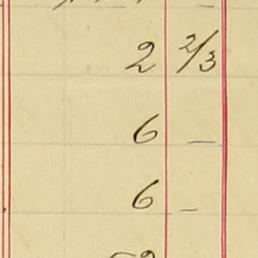 2 2/3
6 —
6 —